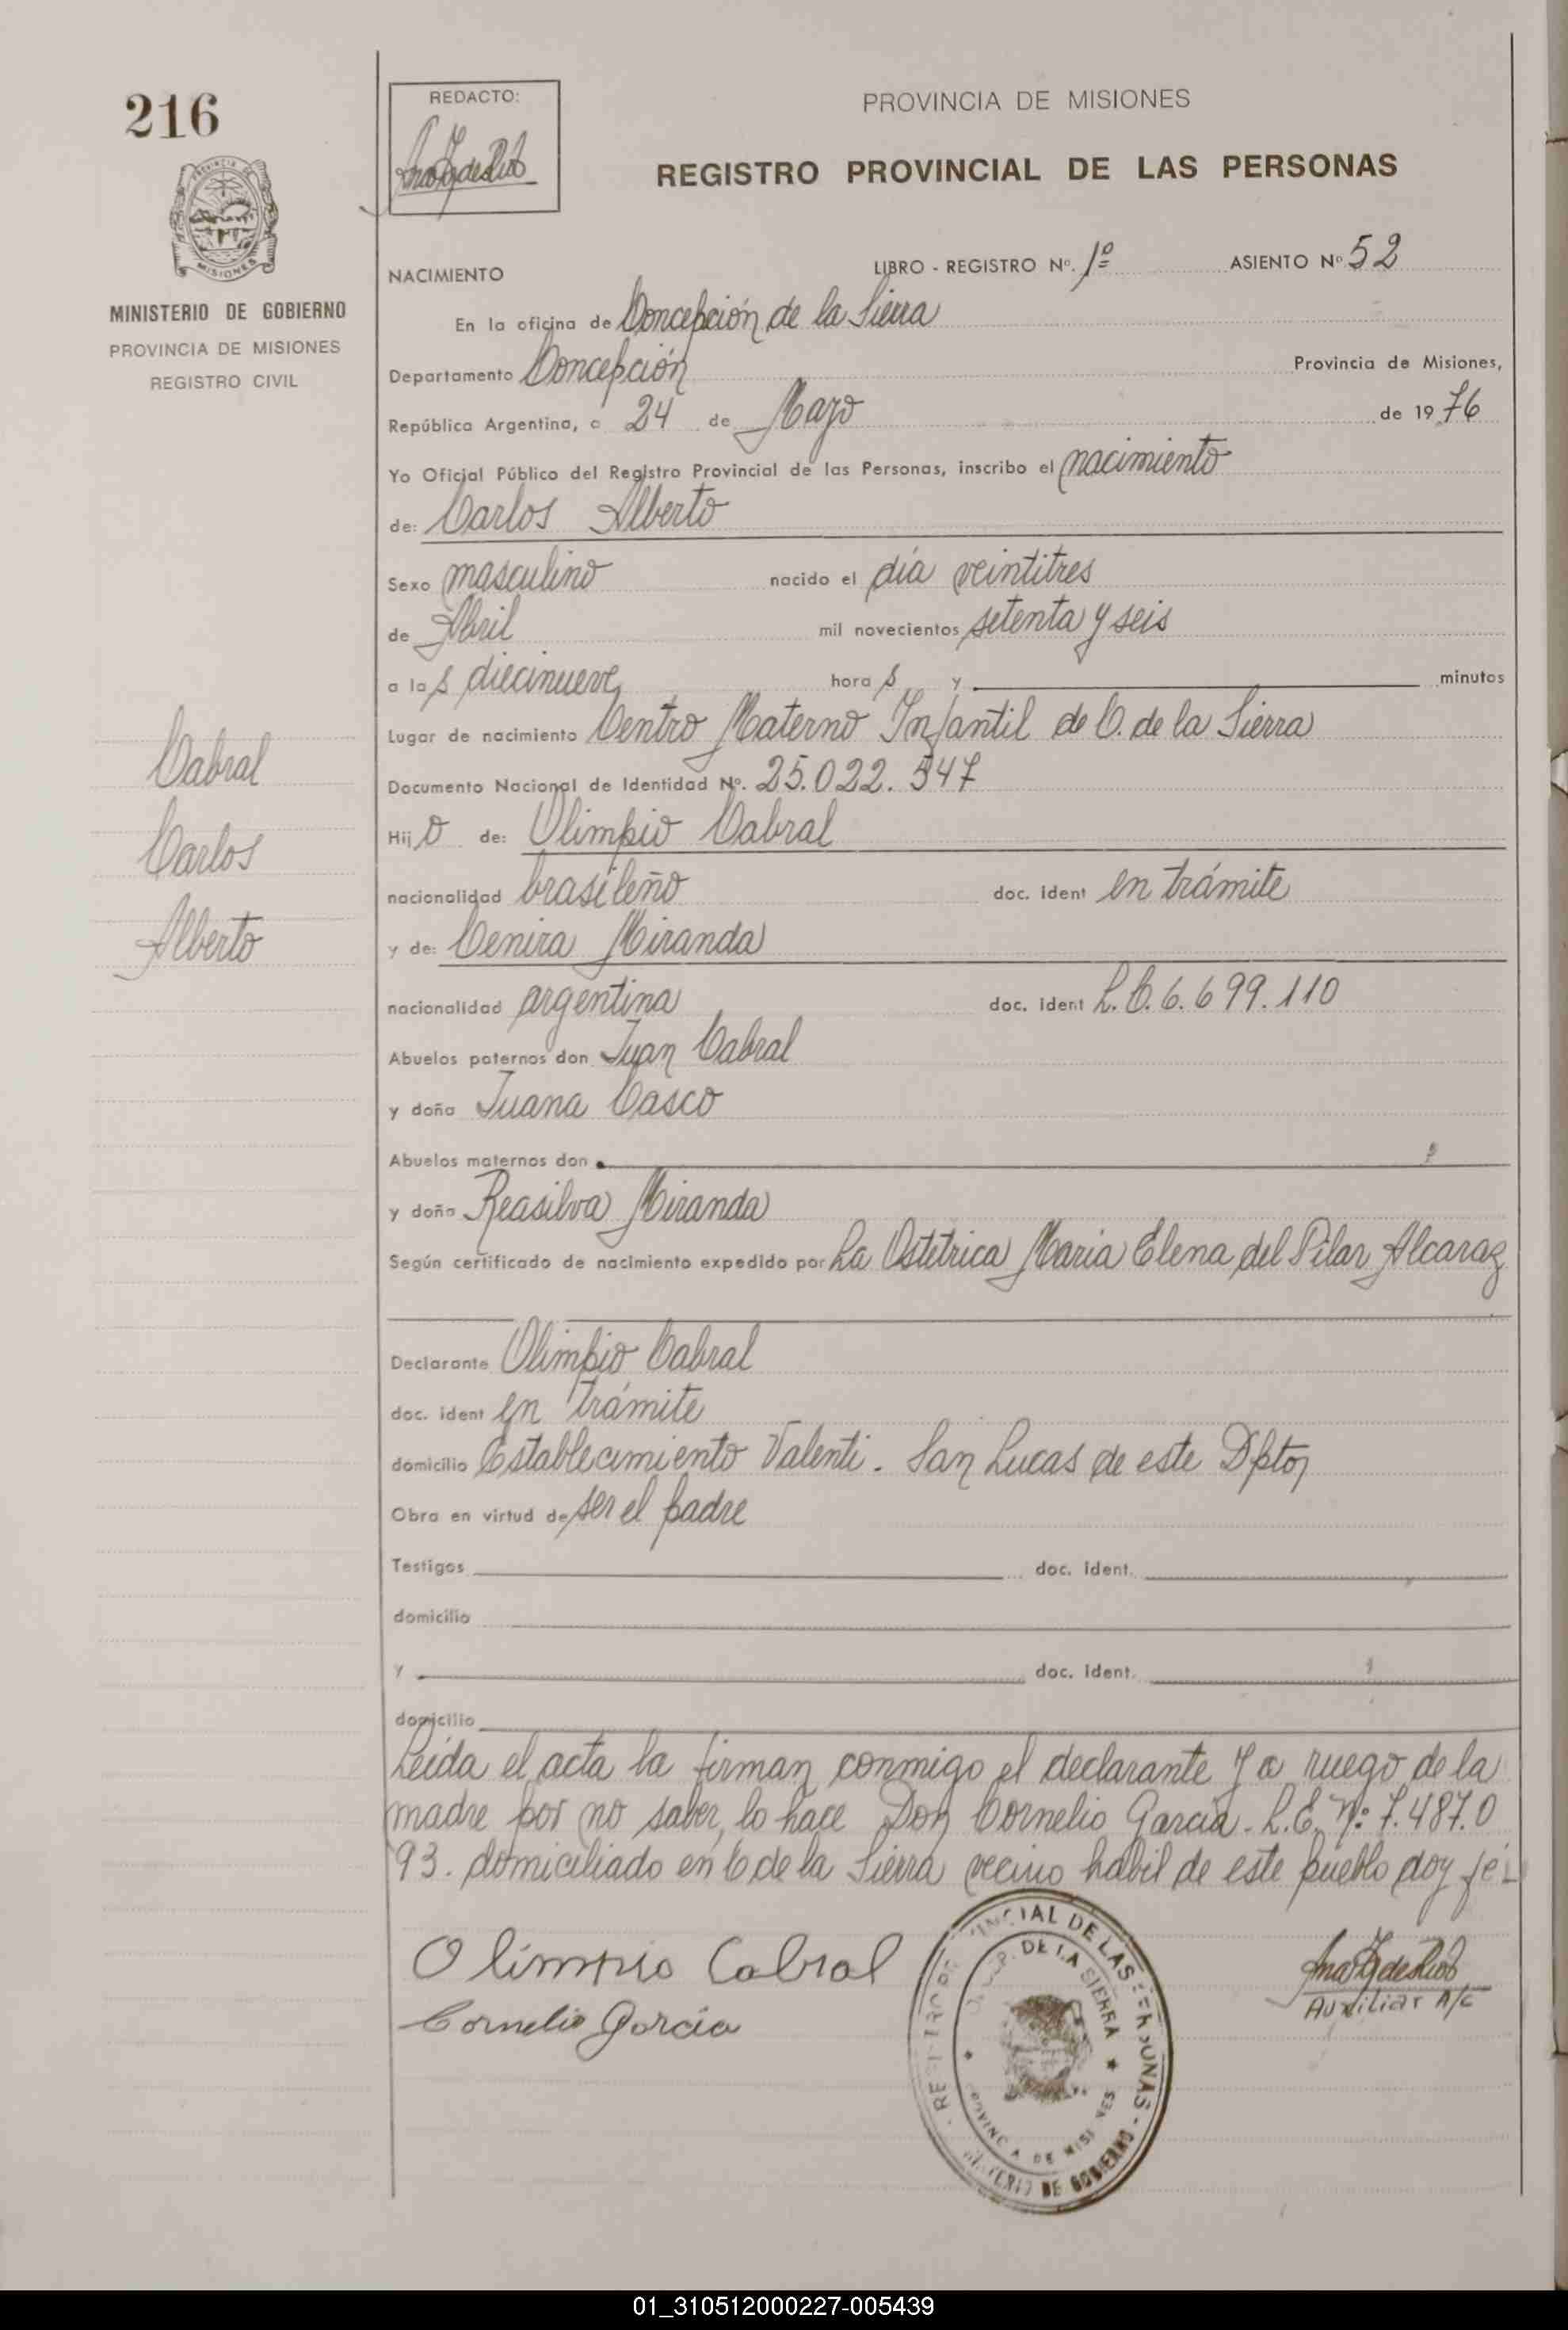 216
REDACTO:
PROVINCIA DE MISIONES
REGISTRO PROVINCIAL DE LAS PERSONAS
MISIONES
MINISTERIO DE GOBIERNO
PROVINCIA DE MISIONES
REGISTRO CIVIL
NACIMIENTO LIBRO - REGISTRO Nº. 1º ASIENTO Nº 52
En la oficina de Concepción de la Sierra
Departamento Concepción Provincia de Misiones,
República Argentina, a 24 de Mayo de 1976
Yo Oficial Público del Registro Provincial de las Personas, inscribo el nacimiento
de: Carlos Alberto
Sexo masculino nacido el día veintitres
de Abril mil novecientos setenta y seis
a las diecinueve horas y minutos
Lugar de nacimiento Centro Materno Infantil de C. de la Sierra
Documento Nacional de Identidad Nº. 25.022.547
Hijo de: Olimpio Cabral
nacionalidad brasileño doc. ident en trámite
y de: Cenira Miranda
nacionalidad argentina doc. ident L.C. 6.699.110
Abuelos paternos don Juan Cabral
y doña Juana Casco
Abuelos maternos don
y doña Reasilva Miranda
Según certificado de nacimiento expedido por La Ostetrica Maria Elena del Pilar Alcaraz
Declarante Olimpio Cabral
doc. ident en trámite
domicilio Establecimiento Valenti. San Lucas de este Dpto,
Obra en virtud de ser el padre
Testigos doc. ident.
domicilio
y doc. ident.
domicilio
Leída el acta la firman conmigo el declarante y a ruego de la
madre por no saber, lo hace Don Cornelio García. L.E. Nº 7.487.0
93. domiciliado en C de la Sierra vecino habil de este pueblo doy fé
Cabral
Carlos
Alberto
Olimpio Cabral
Cornelio García
Auxiliar A/C
DE LA SIERRA
01_310512000227-005439